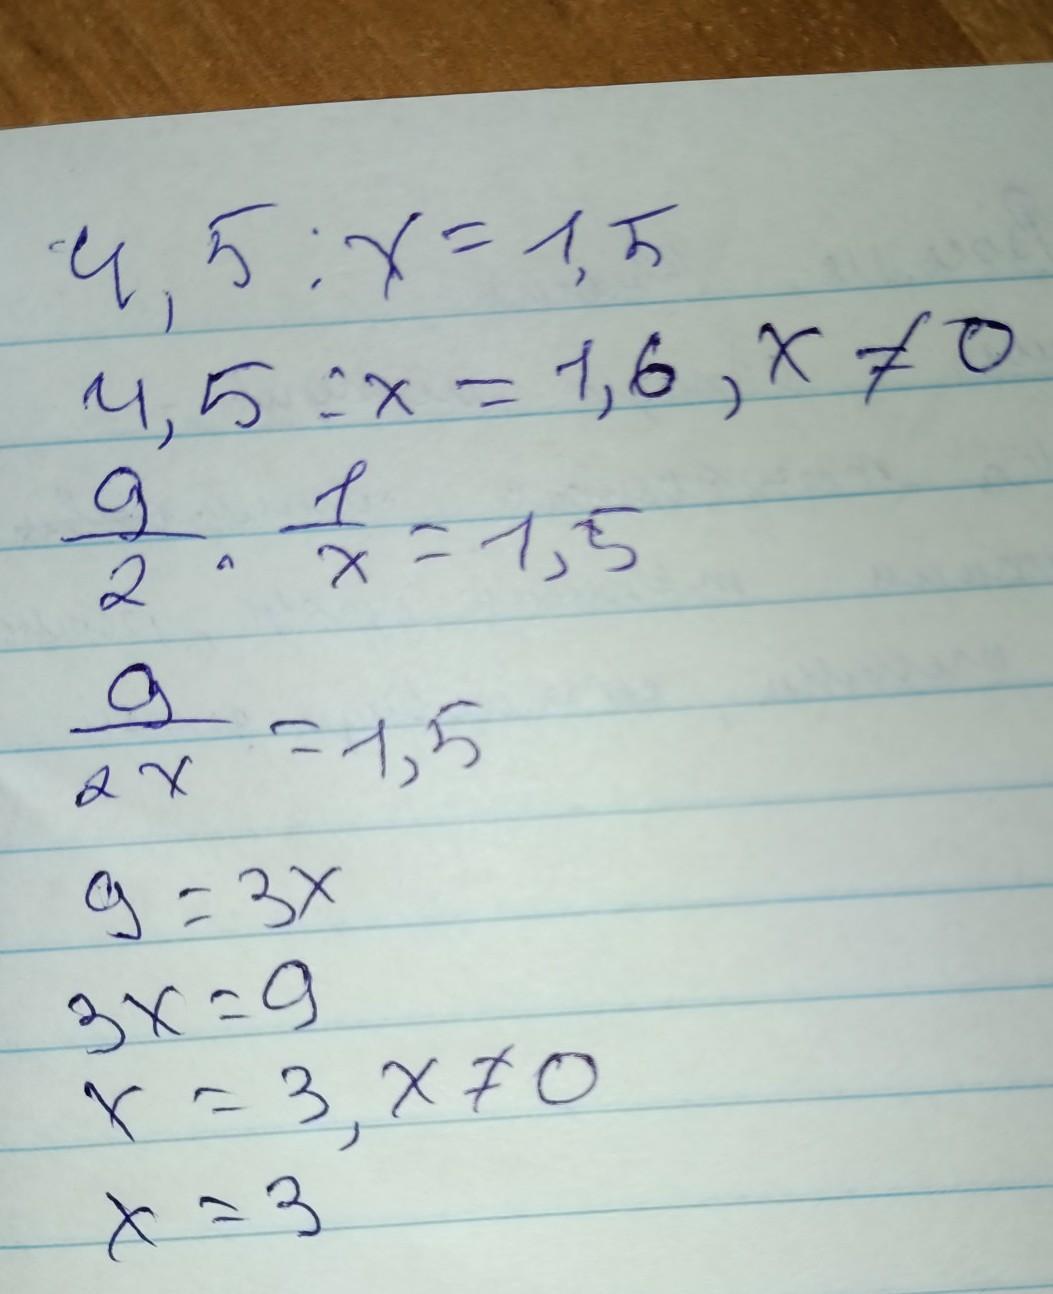 4,5 : x = 1,5
4,5 ÷ x = 1,6 , x ≠ 0
9/2 · 1/x = 1,5
9/2x = 1,5
9 = 3x
3x = 9
x = 3, x ≠ 0
x = 3